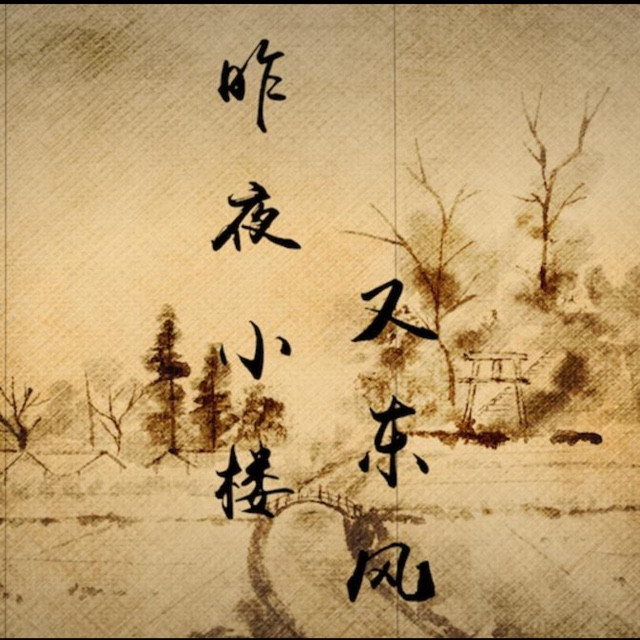 昨夜小楼
又东风